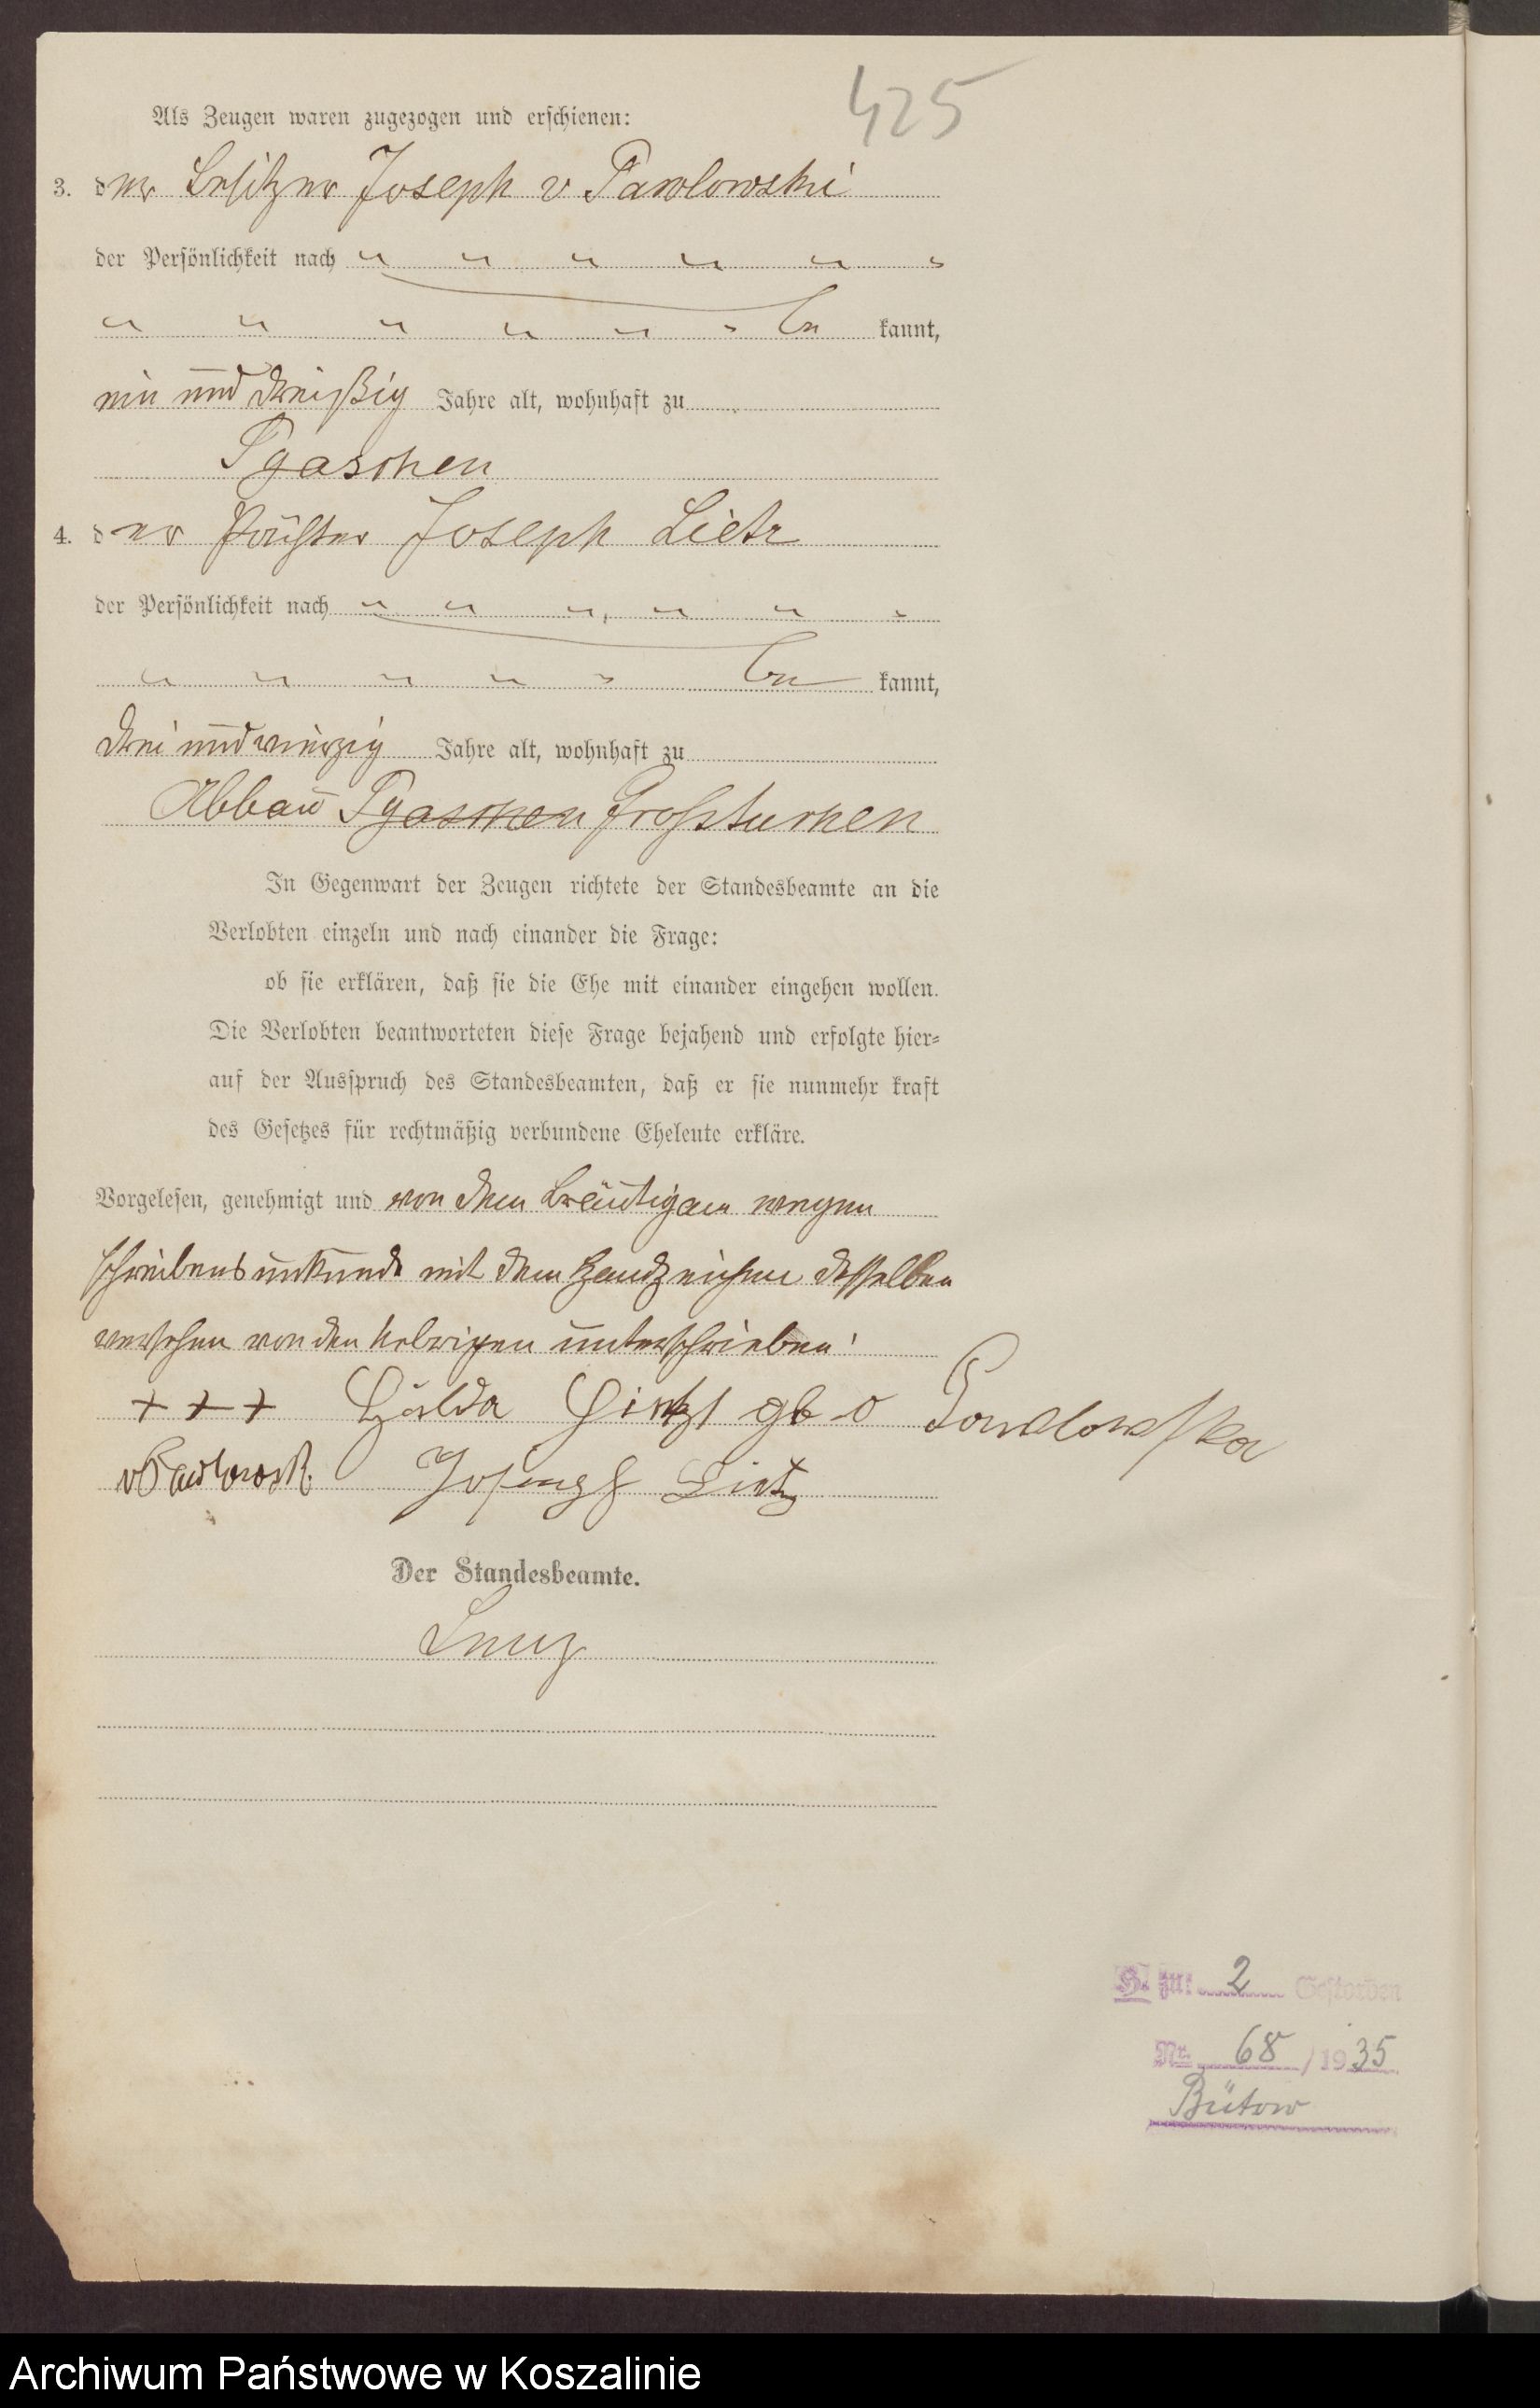 425
Als Zeugen waren zugezogen und erschienen:
3. der Besitzer Joseph v Pawlowski
der Persönlichkeit nach
be kannt,
ein und dreißig Jahre alt, wohnhaft zu
Pyaschen
4. der Joseph Lietz
der Persönlichkeit nach
be kannt,
drei und vierzig Jahre alt, wohnhaft zu
Abbau Großtuchen
In Gegenwart der Zeugen richtete der Standesbeamte an die
Verlobten einzeln und nach einander die Frage:
ob sie erklären, daß sie die Ehe mit einander eingehen wollen.
Die Verlobten beantworteten diese Frage bejahend und erfolgte hier=
auf der Ausspruch des Standesbeamten, daß er sie nunmehr kraft
des Gesetzes für rechtmäßig verbundene Eheleute erkläre.
Vorgelesen, genehmigt und von dem Bräutigam wegen
Schreibensunkunde mit dem Handzeichen desselben
versehen von den Uebrigen unterschrieben:
+++ gb v Pawlowska
v Pawlowski Joseph Lietz
Der Standesbeamte.
H. zu: 2 Gestorben
Nr. 68 / 1935
Bütow
Archiwum Państwowe w Koszalinie